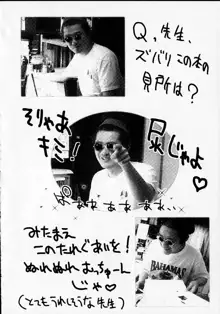 Q、先生、
ズバリこの本の
見所は？
そりゃあ
キミ！
尿じゃよ♡
みたまえ
このたれぐあいを！
ぬれぬれむっちゅーん
じゃ♡
(とてもうれしそうな先生)
BAHAMAS